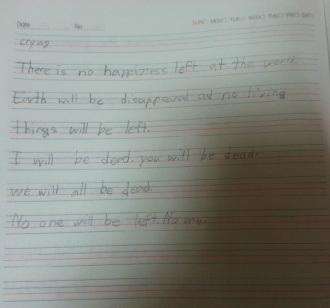 Date No. SUN□ MON□ TUE□ WED□ THU□ FRI□ SAT□
crying
There is no happiness left at the world.
Earth will be disappeared and no living
things will be left.
I will be dead. you will be dead.
we will all be dead.
No one will be left. No one.